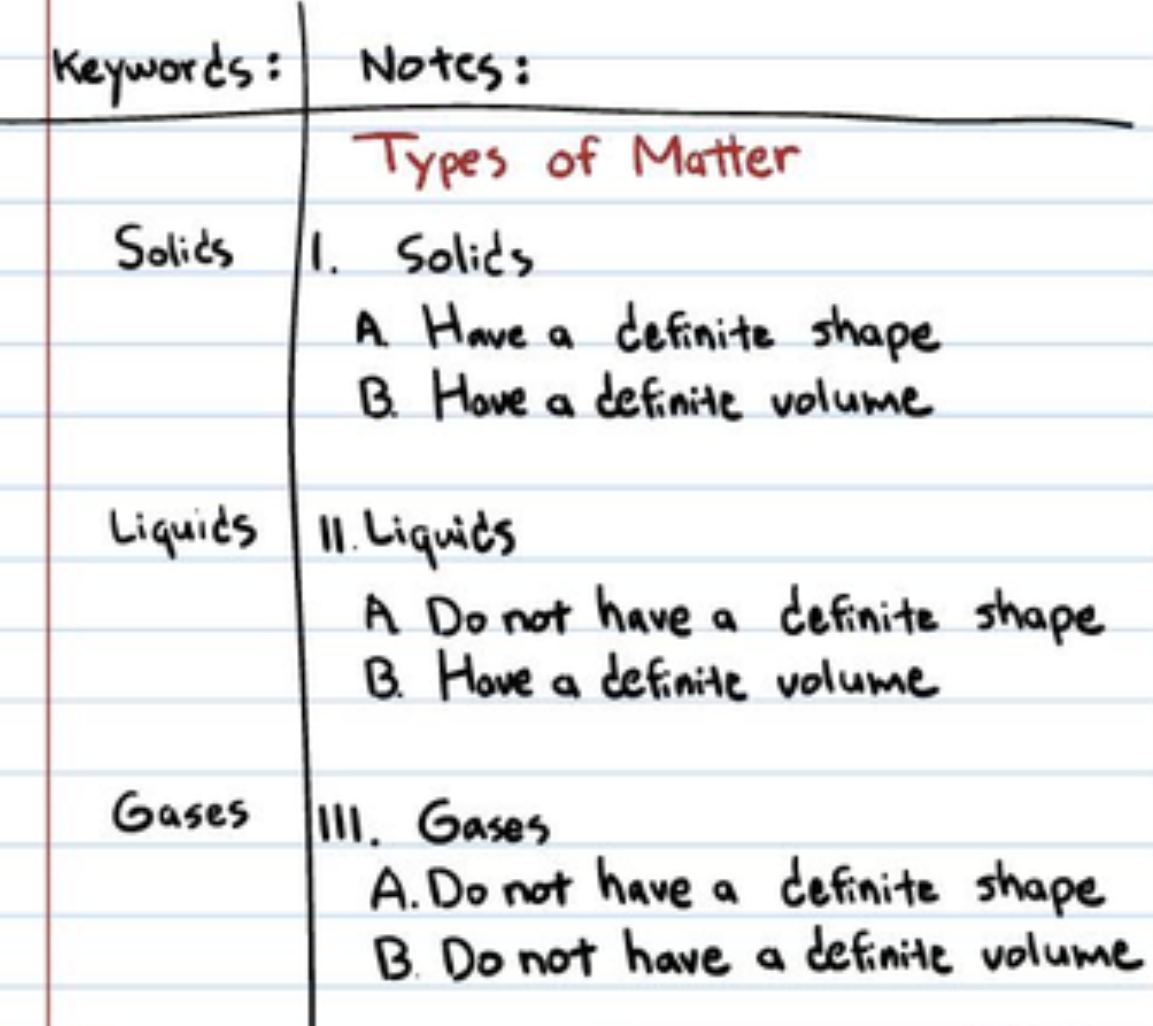 Keywords: Notes:
Types of Matter
Solids I. Solids
A. Have a definite shape
B. Have a definite volume
Liquids II. Liquids
A. Do not have a definite shape
B. Have a definite volume
Gases III. Gases
A. Do not have a definite shape
B. Do not have a definite volume